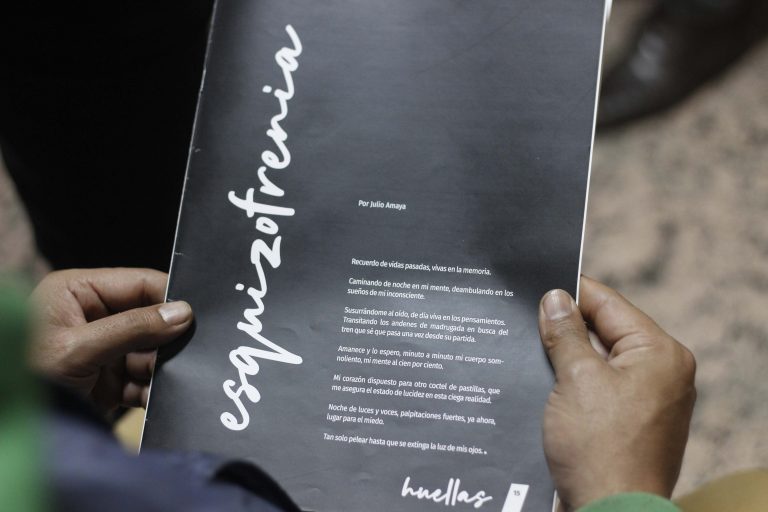 esquizofrenia
Por Julio Amaya
Recuerdo de vidas pasadas, vivas en la memoria.
Caminando de noche en mi mente, deambulando en los
sueños de mi inconsciente.
Susurrándome al oído, de día viva en los pensamientos.
Transitando los andenes de madrugada en busca del
tren que sé que pasa una vez desde su partida.
Amanece y lo espero, minuto a minuto mi cuerpo som-
noliento, mi mente al cien por ciento.
Mi corazón dispuesto para otro coctel de pastillas, que
me asegura el estado de lucidez en esta ciega realidad.
Noche de luces y voces, palpitaciones fuertes, ya ahora,
lugar para el miedo.
Tan solo pelear hasta que se extinga la luz de mis ojos.
huellas
15